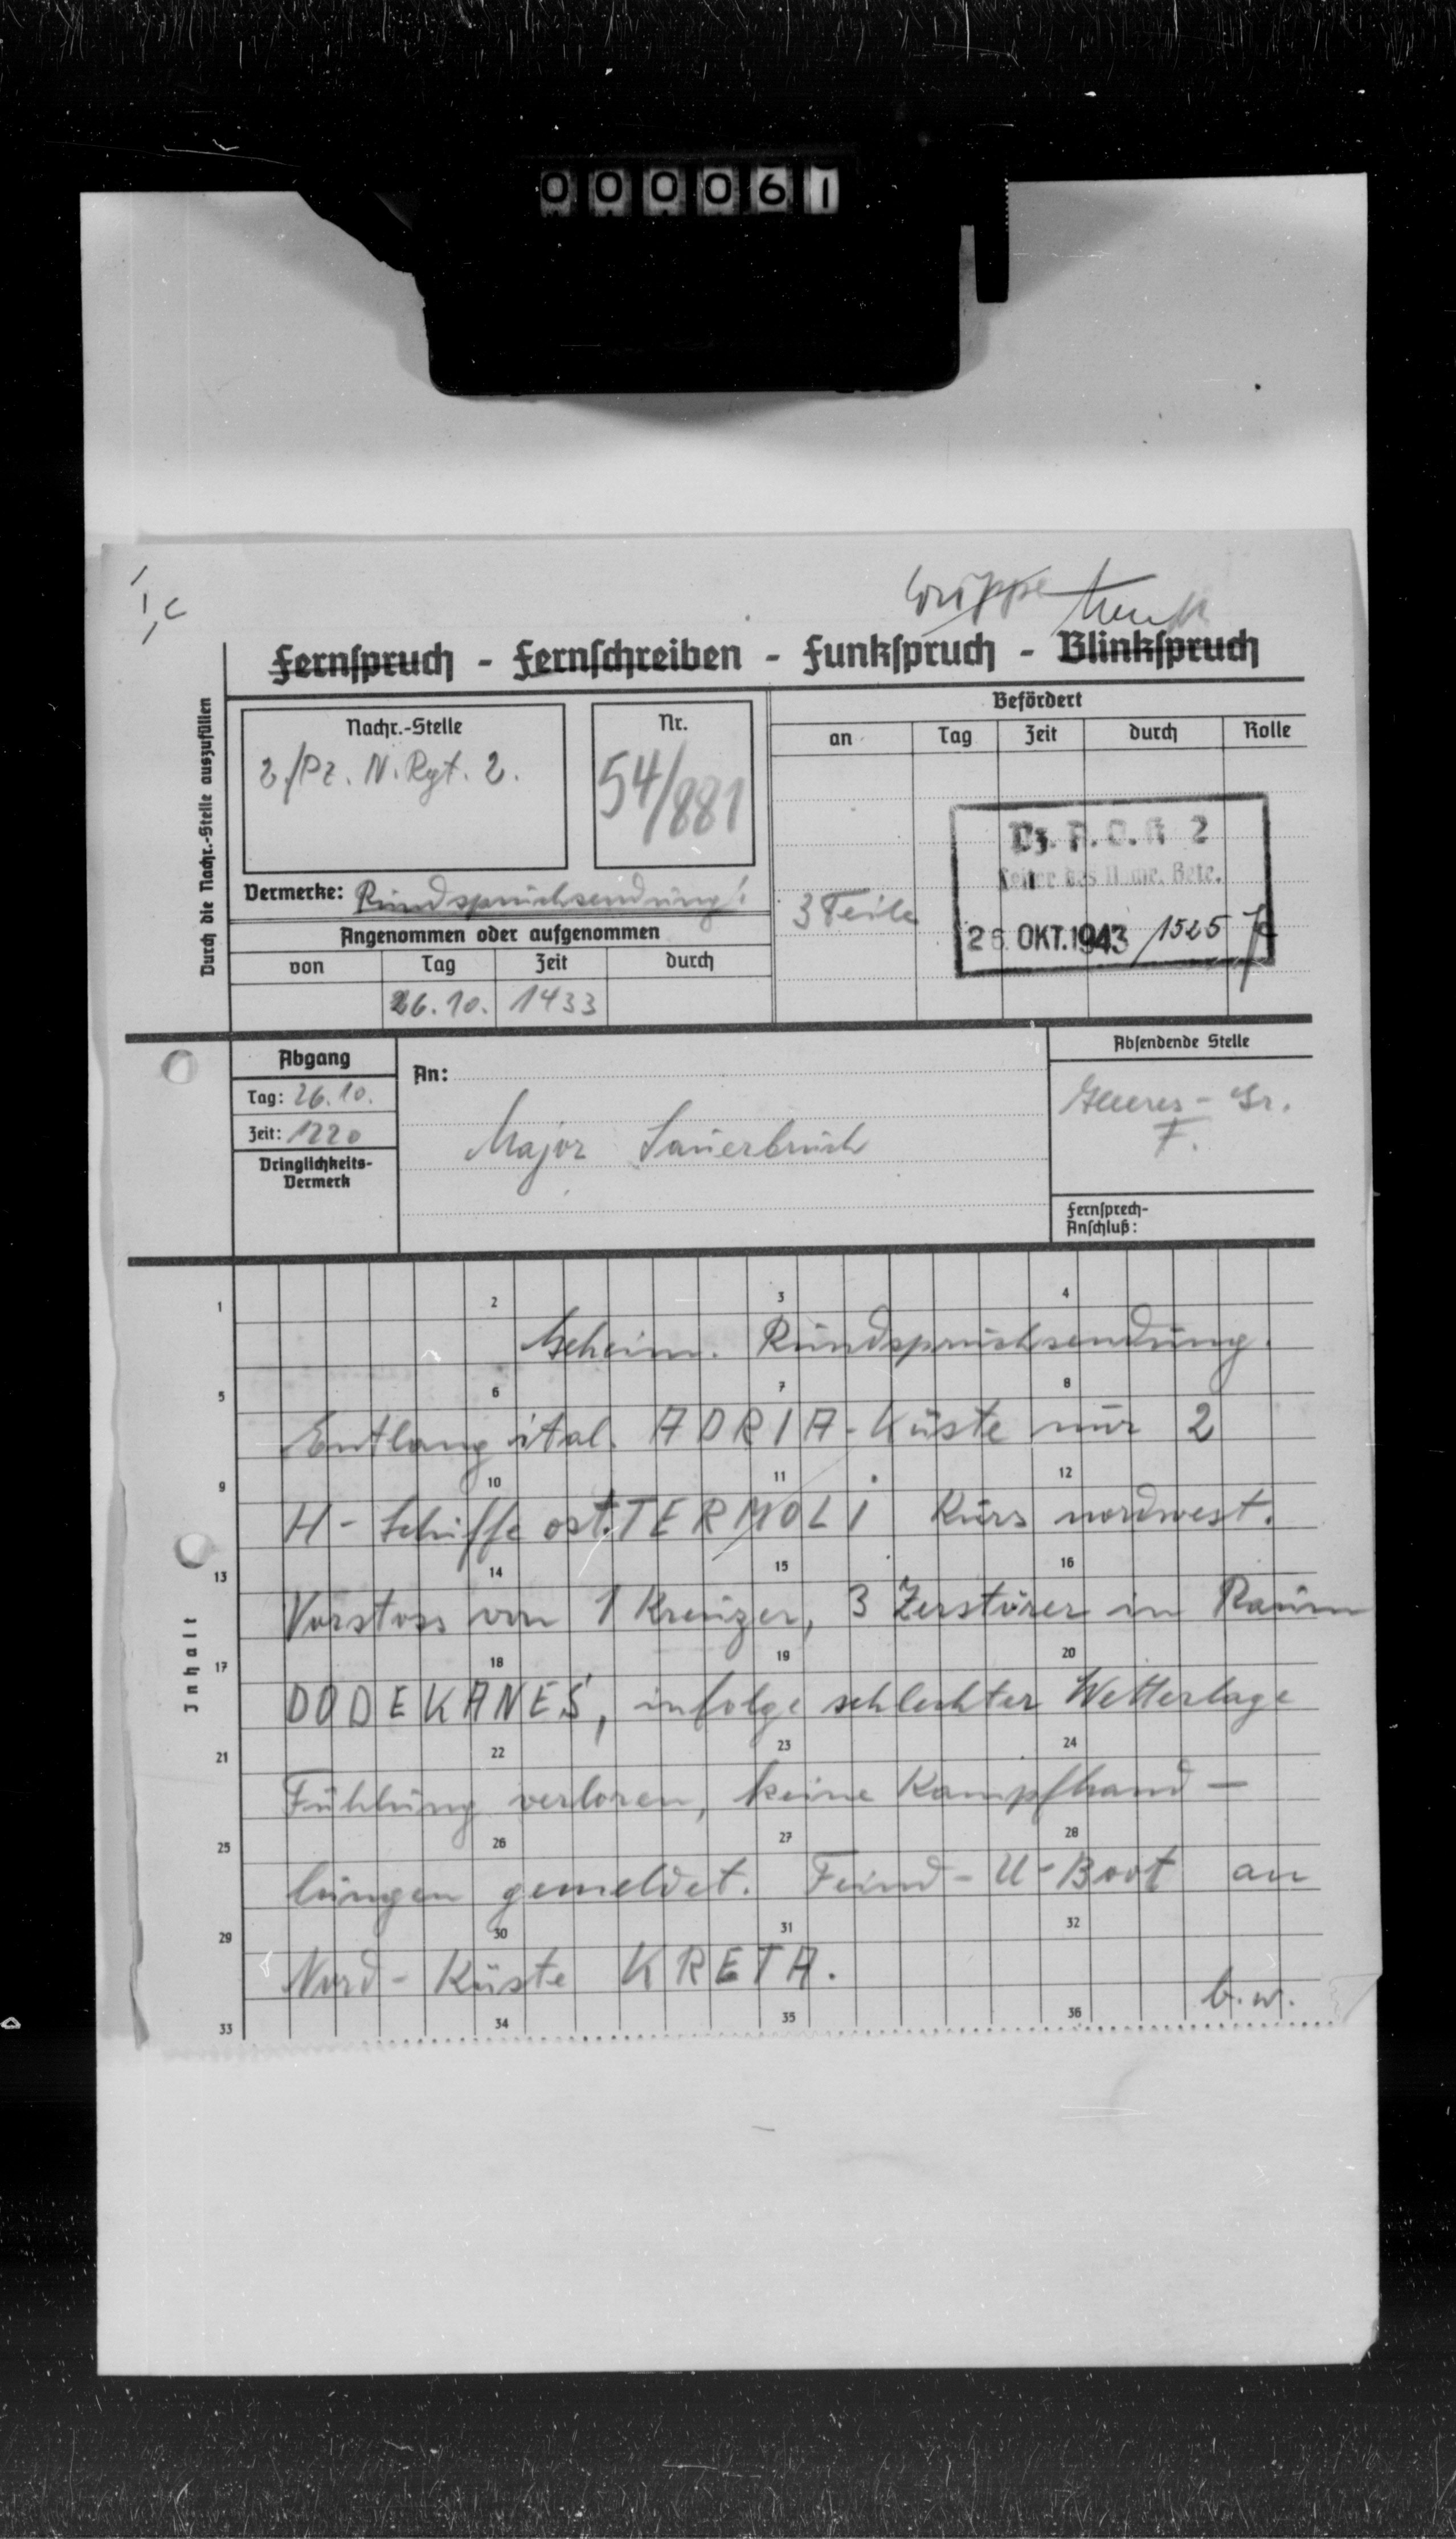 000061
I c
Gruppe
Fernspruch - Fernschreiben - Funkspruch - Blinkspruch
Durch die Nachr.-Stelle auszufüllen
Nachr.-Stelle
2./Pz. N. Rgt. 2.
Nr.
54/881
Befördert
an Tag Zeit durch Rolle
Vermerke: Rundspruchsendung!
3 Teile
26. OKT. 1943 1525
Angenommen oder aufgenommen
von Tag Zeit durch
26.10. 1433
Abgang
Tag: 26.10.
Zeit: 1220
Dringlichkeits-
Vermerk
An:
Major Sauerbruch
Absendende Stelle
Heeres-Gr.
F.
Fernsprech-
Anschluß:
Inhalt
1 2 3 4
Geheim. Rundspruchsendung.
5 6 7 8
Entlang ital. ADRIA-Küste nur 2
9 10 11 12
H-Schiffe ost. TERMOLI Kurs nordwest.
13 14 15 16
Vorstoss von 1 Kreuzer, 3 Zerstörer in Raum
17 18 19 20
DODEKANES, infolge schlechter Wetterlage
21 22 23 24
Fühlung verloren, keine Kampfhand-
25 26 27 28
lungen gemeldet. Feind-U-Boot an
29 30 31 32
Nord-Küste KRETA.
b.w.
33 34 35 36